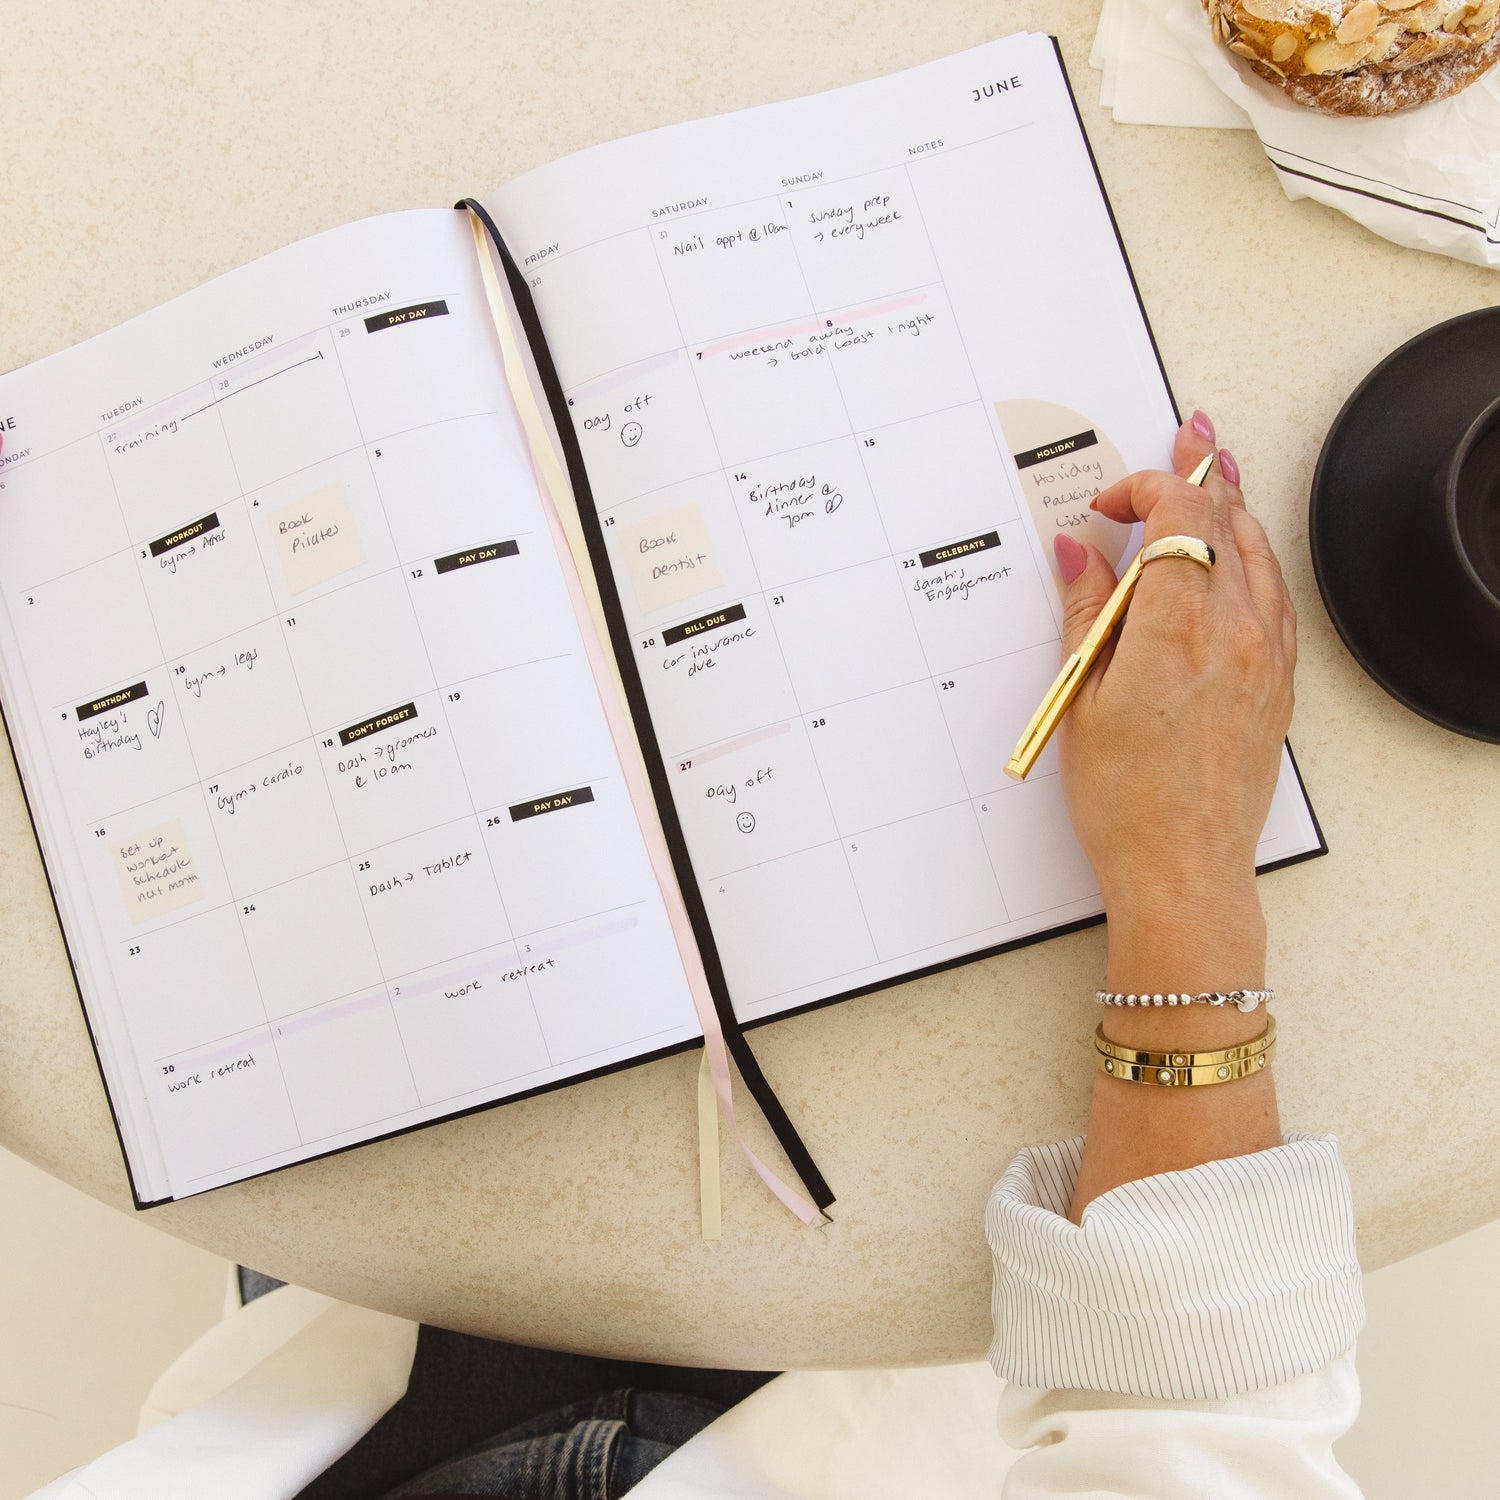 NE
JUNE
ONDAY
TUESDAY
WEDNESDAY
THURSDAY
FRIDAY
SATURDAY
SUNDAY
NOTES
6
27
Training
28
29
PAY DAY
30
31
Nail appt @ 10am
1
Sunday prep
→ every week
2
3
WORKOUT
Gym → Arms
4
Book
Pilates
5
6
Day off
7
8
weekend away
→ Gold Coast 1 night
9
BIRTHDAY
Hayley's
Birthday
10
Gym → legs
11
12
PAY DAY
13
Book
Dentist
14
Birthday
dinner @
7pm
15
HOLIDAY
Holiday
Packing
List
16
Set up
workout
schedule
next month
17
Gym → cardio
18
DON'T FORGET
Dash → groomers
@ 10am
19
20
BILL DUE
Car insurance
due
21
22
CELEBRATE
Sarah's
Engagement
23
24
25
Dash → Tablet
26
PAY DAY
27
Day off
28
29
30
work retreat
1
2
3
work retreat
4
5
6